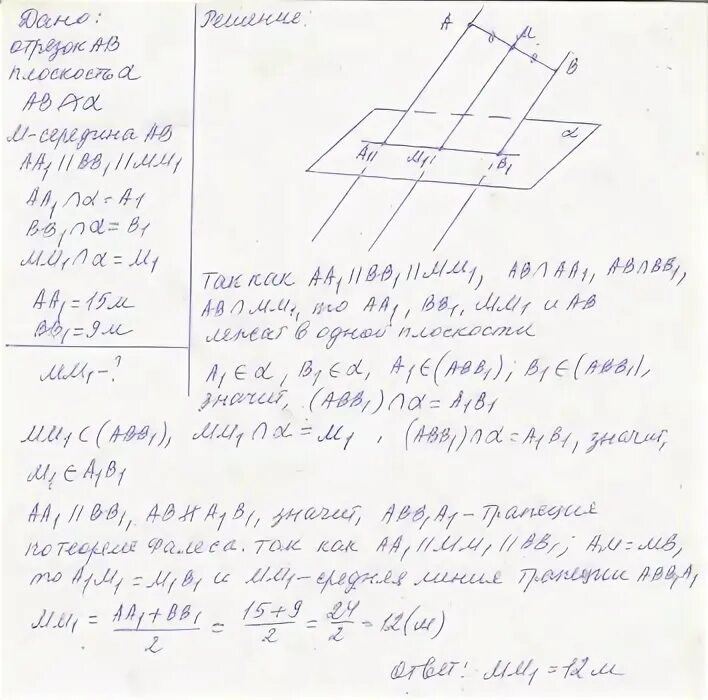 Дано:
отрезок AB
плоскость α
AB ⋂̸ α
M-середина AB
AA₁ || BB₁ || MM₁
AA₁ ∩ α = A₁
BB₁ ∩ α = B₁
MM₁ ∩ α = M₁
AA₁ = 15м
BB₁ = 9м
MM₁ - ?
Решение:
A
M
B
α
A₁
M₁
B₁
Так как AA₁ || BB₁ || MM₁, AB∩AA₁, AB∩BB₁,
AB∩MM₁, то AA₁, BB₁, MM₁ и AB
лежат в одной плоскости
A₁ ∈ α, B₁ ∈ α, A₁ ∈ (ABB₁); B₁ ∈ (ABB₁),
значит, (ABB₁) ∩ α = A₁B₁
MM₁ ⊂ (ABB₁), MM₁ ∩ α = M₁, (ABB₁) ∩ α = A₁B₁, значит,
M₁ ∈ A₁B₁
AA₁ || BB₁, AB ∦ A₁B₁, значит, ABB₁A₁ - трапеция
по теореме Фалеса. Так как AA₁ || MM₁ || BB₁; AM = MB,
то A₁M₁ = M₁B₁ и MM₁ - средняя линия трапеции ABB₁A₁
MM₁ = (AA₁ + BB₁)/2 = (15+9)/2 = 24/2 = 12 (м)
Ответ: MM₁ = 12м